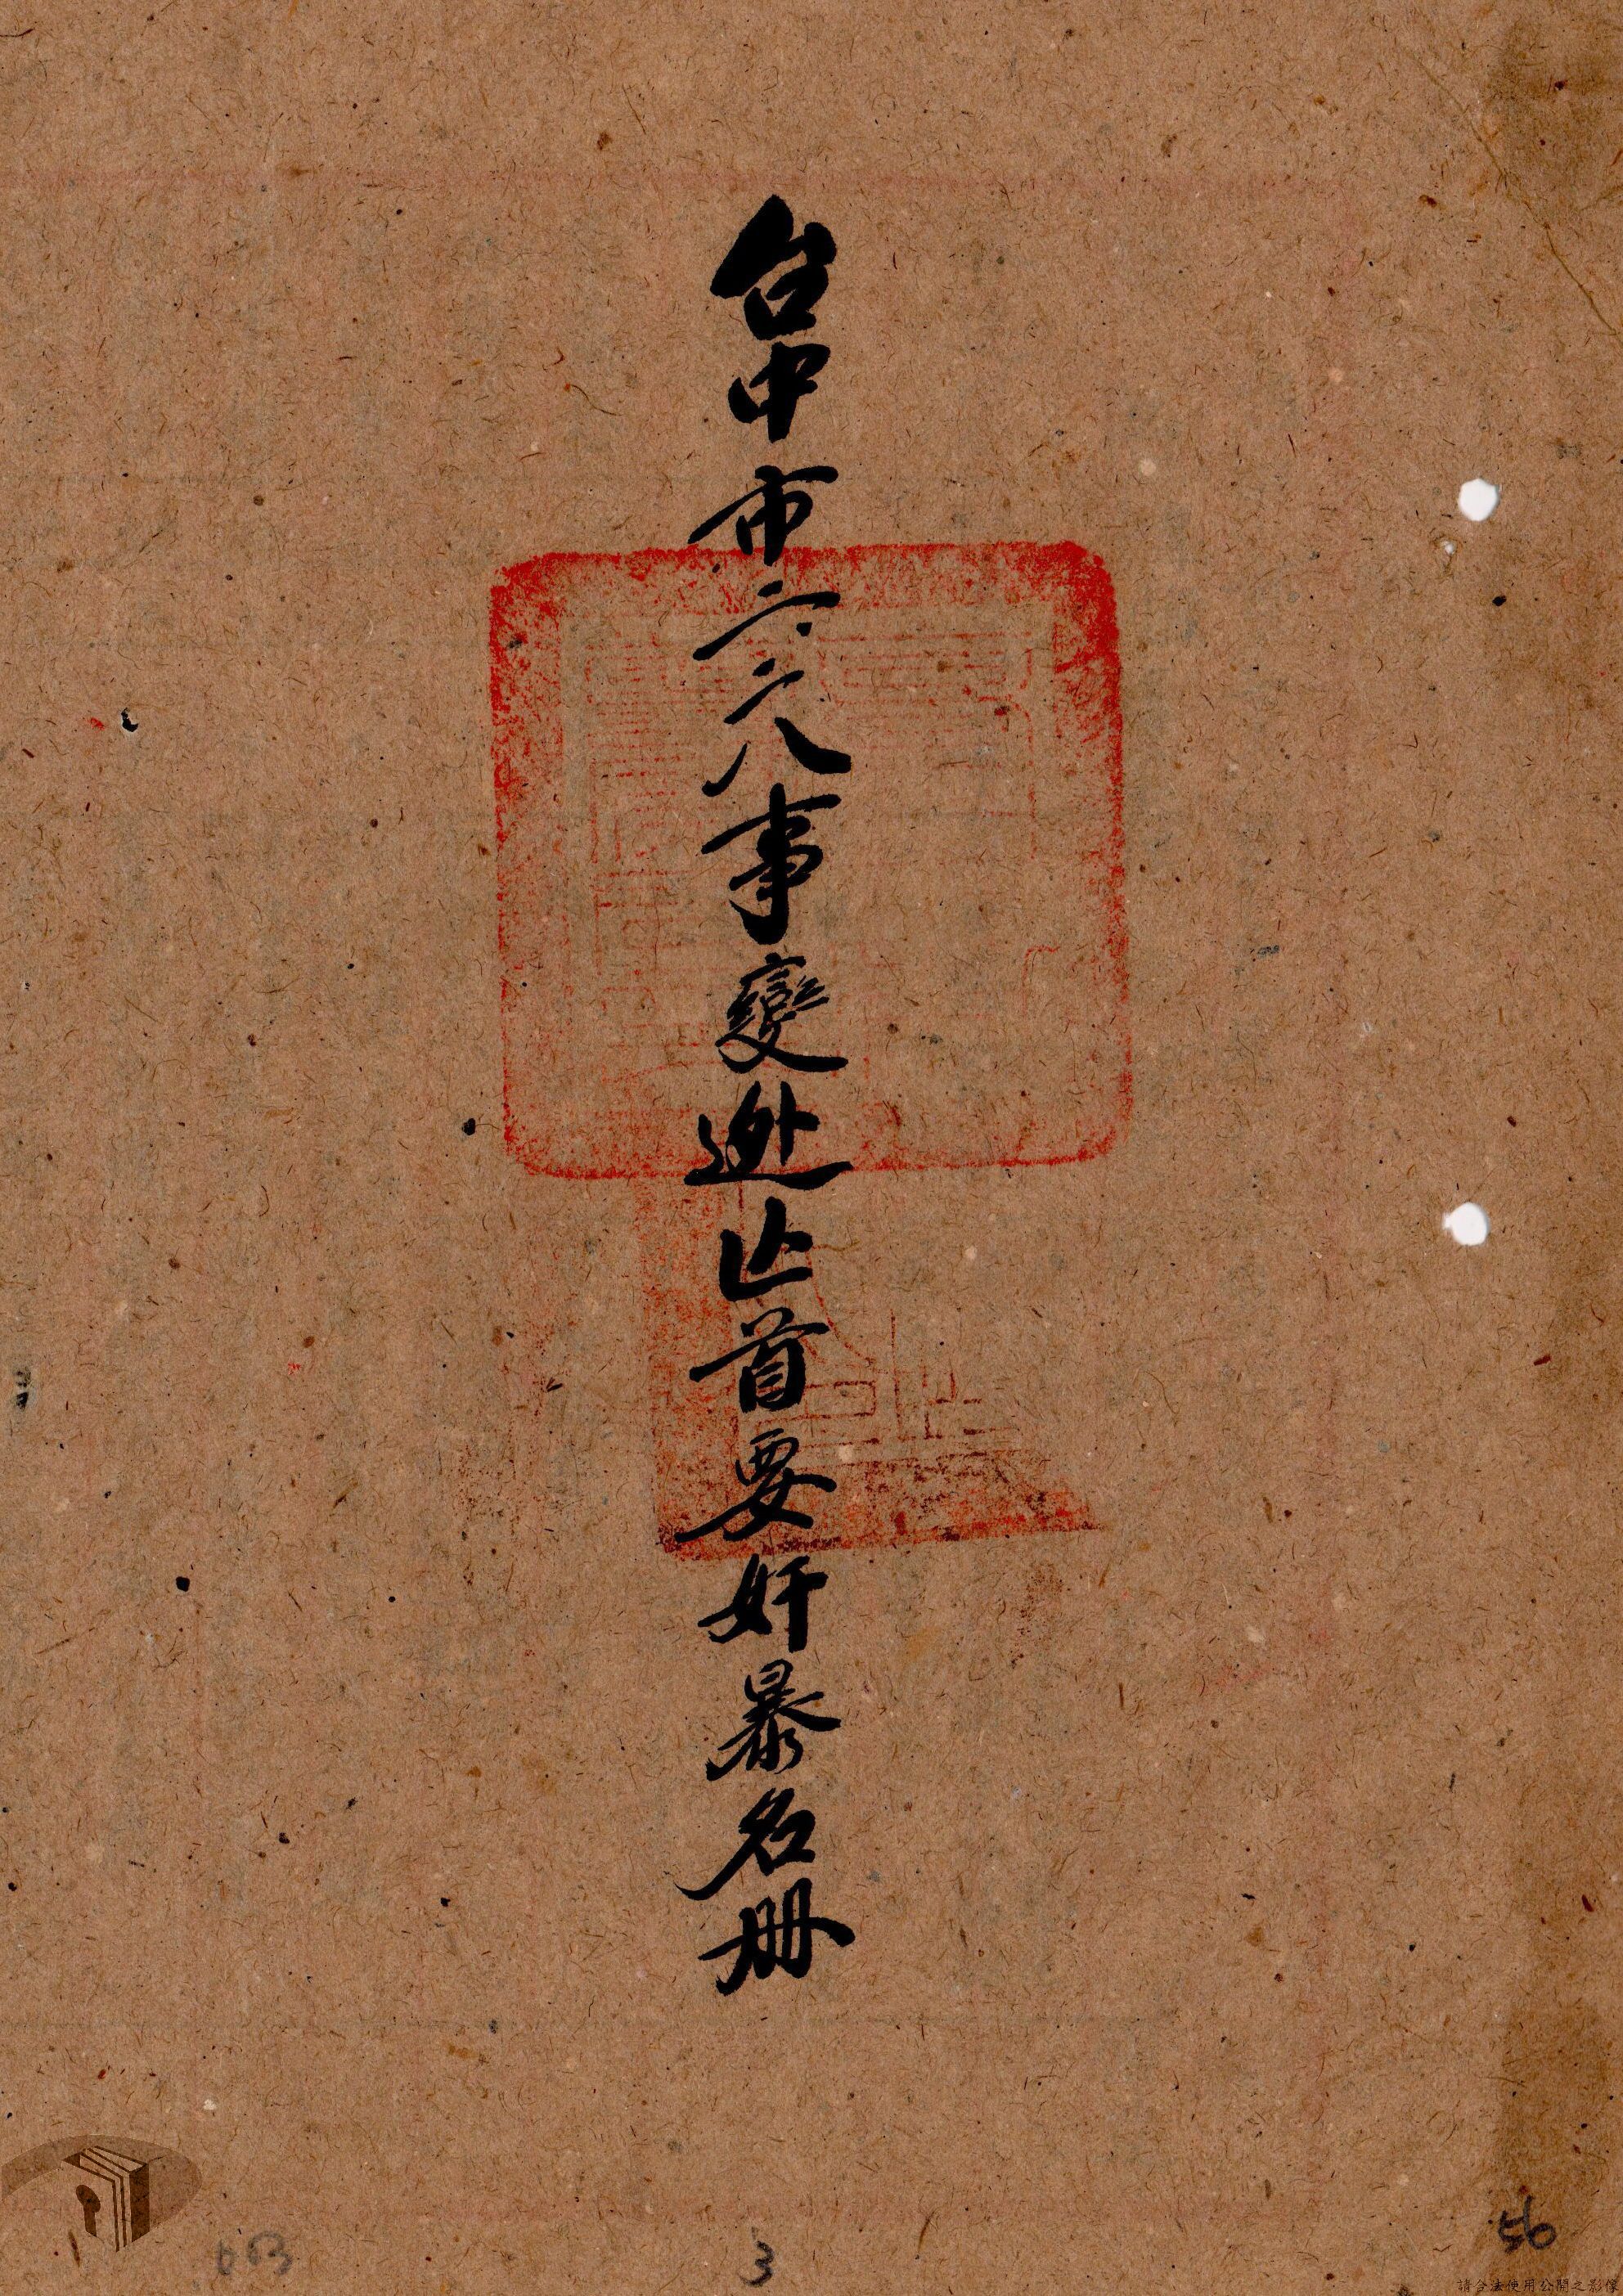 台中市二二八事變逃亡首要奸暴名冊
663
3
56
請合法使用公開之影像